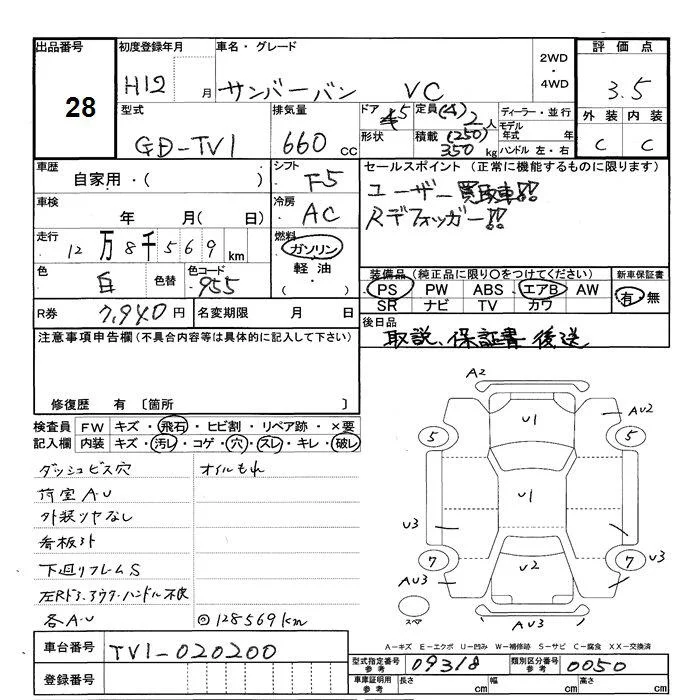 出品番号 初度登録年月 車名・グレード 評価点
28 H12 月 サンバーバン VC 2WD・4WD 3.5
型式 排気量 ドア 定員 ディーラー・並行 外装 内装
GD-TV1 660 CC 5 (4) 2人 モデル年式 年 C C
形状 積載 (250) 350 kg ハンドル 左・右
車歴 シフト セールスポイント(正常に機能するものに限ります)
自家用・( ) F5 ユーザー買取車!!
車検 冷房 Rデフォッガー!!
年 月( 日) AC
走行 燃料
12万8千569km ガソリン
色 色替 色コード 軽油 装備品(純正品に限り〇をつけてください) 新車保証書
白 955 ・( ) PS PW ABS エアB AW 有・無
SR ナビ TV カワ
R券 7,940円 名変期限 月 日 後日品
取説、保証書 後送
注意事項申告欄(不具合内容等は具体的に記入して下さい)
修復歴 有〔箇所 〕
検査員 FW キズ・飛石・ヒビ割・リペア跡・×要
記入欄 内装 キズ・汚レ・コゲ・穴・スレ・キレ・破レ
ダッシュビス穴 オイルもれ
荷室AU
外装ツヤなし
看板跡
下廻リフレームS
各AU ◎128569km
A2
U1 AU2
5 5
U1
U3
7 7 U3
AU3 U2
スペア AU3
A-キズ E-エクボ U-凹み W-補修跡 S-サビ C-腐食 XX-交換済
車台番号 TV1-020200
型式指定番号 参考 09318 類別区分番号 参考 0050
登録番号 車庫証明用 参考 長さ cm 幅 cm 高さ cm